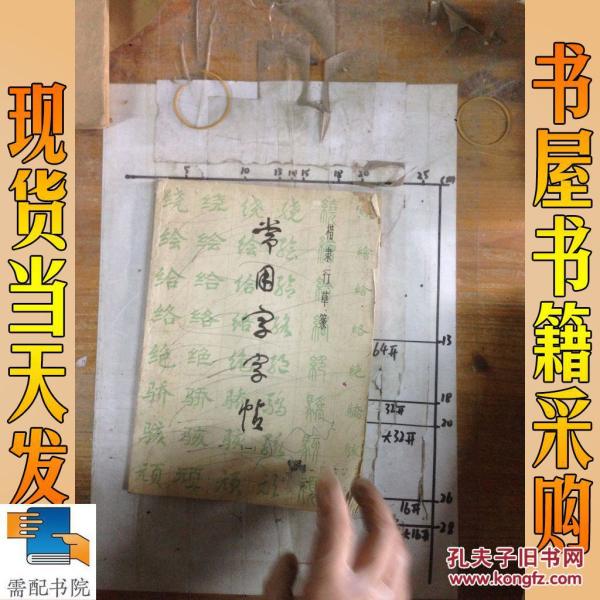 现货当天发
书屋书籍采购
常用字字帖
(一)
楷隶行草篆
绕 绕 绕 绕
绘 绘 绘 绘
给 给 给 给
络 络 络 络
绝 绝 绝 绝
骄 骄 骄 骄
骇 骇 骇 骇
顽 顽 顽 顽
5 10 13 14 15 18 20 25 cm
13
64开
18
32开
20
大32开
26
16开
28
大16开
需配书院
孔夫子旧书网
www.kongfz.com